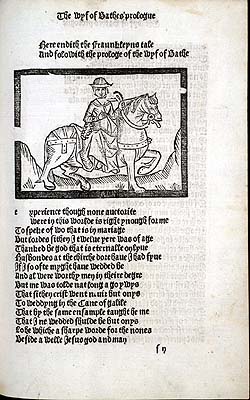 The wyf of Bathes prologue
Here endith the Fraunkleyns tale
And folowith the prologe of the wyf of Bathe
e xperience though none auctorite
Were in this worlde is right ynough for me
To speke of wo that is in mariage
But lordes sithen I twelue yere was of age
Thanked be god that is eternal on lyue
Husbondes at the chirche dore haue I had fyue
If I so ofte myght haue wedded be
And al were worthy men in their degre
But me was tolde nat long ago ywys
That sithen crist went neuir but onys
To weddyng in the Cane of galile
That by the same ensample taught he me
That I ne wedded shulde be but onys
Lo he whiche a sharpe worde for the nones
Beside a welle Jesus god and man